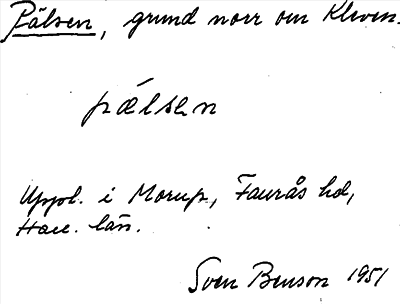 Pälsen, grund norr om Kleven.
pǽlsen
Uppt. i Morup, Faurås hd,
Hall. län.
Sven Benson 1951